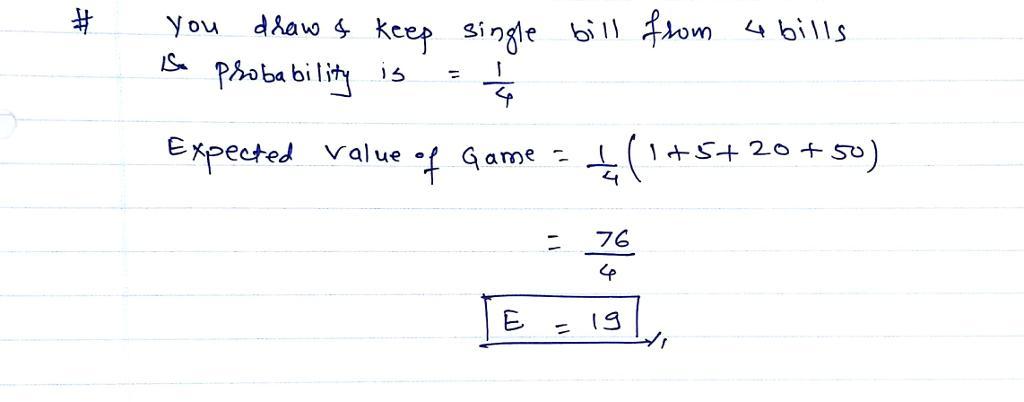 # You draw & keep single bill from 4 bills
is probability is = 1/4
Expected value of Game = 1/4 (1+5+20+50)
= 76/4
E = 19